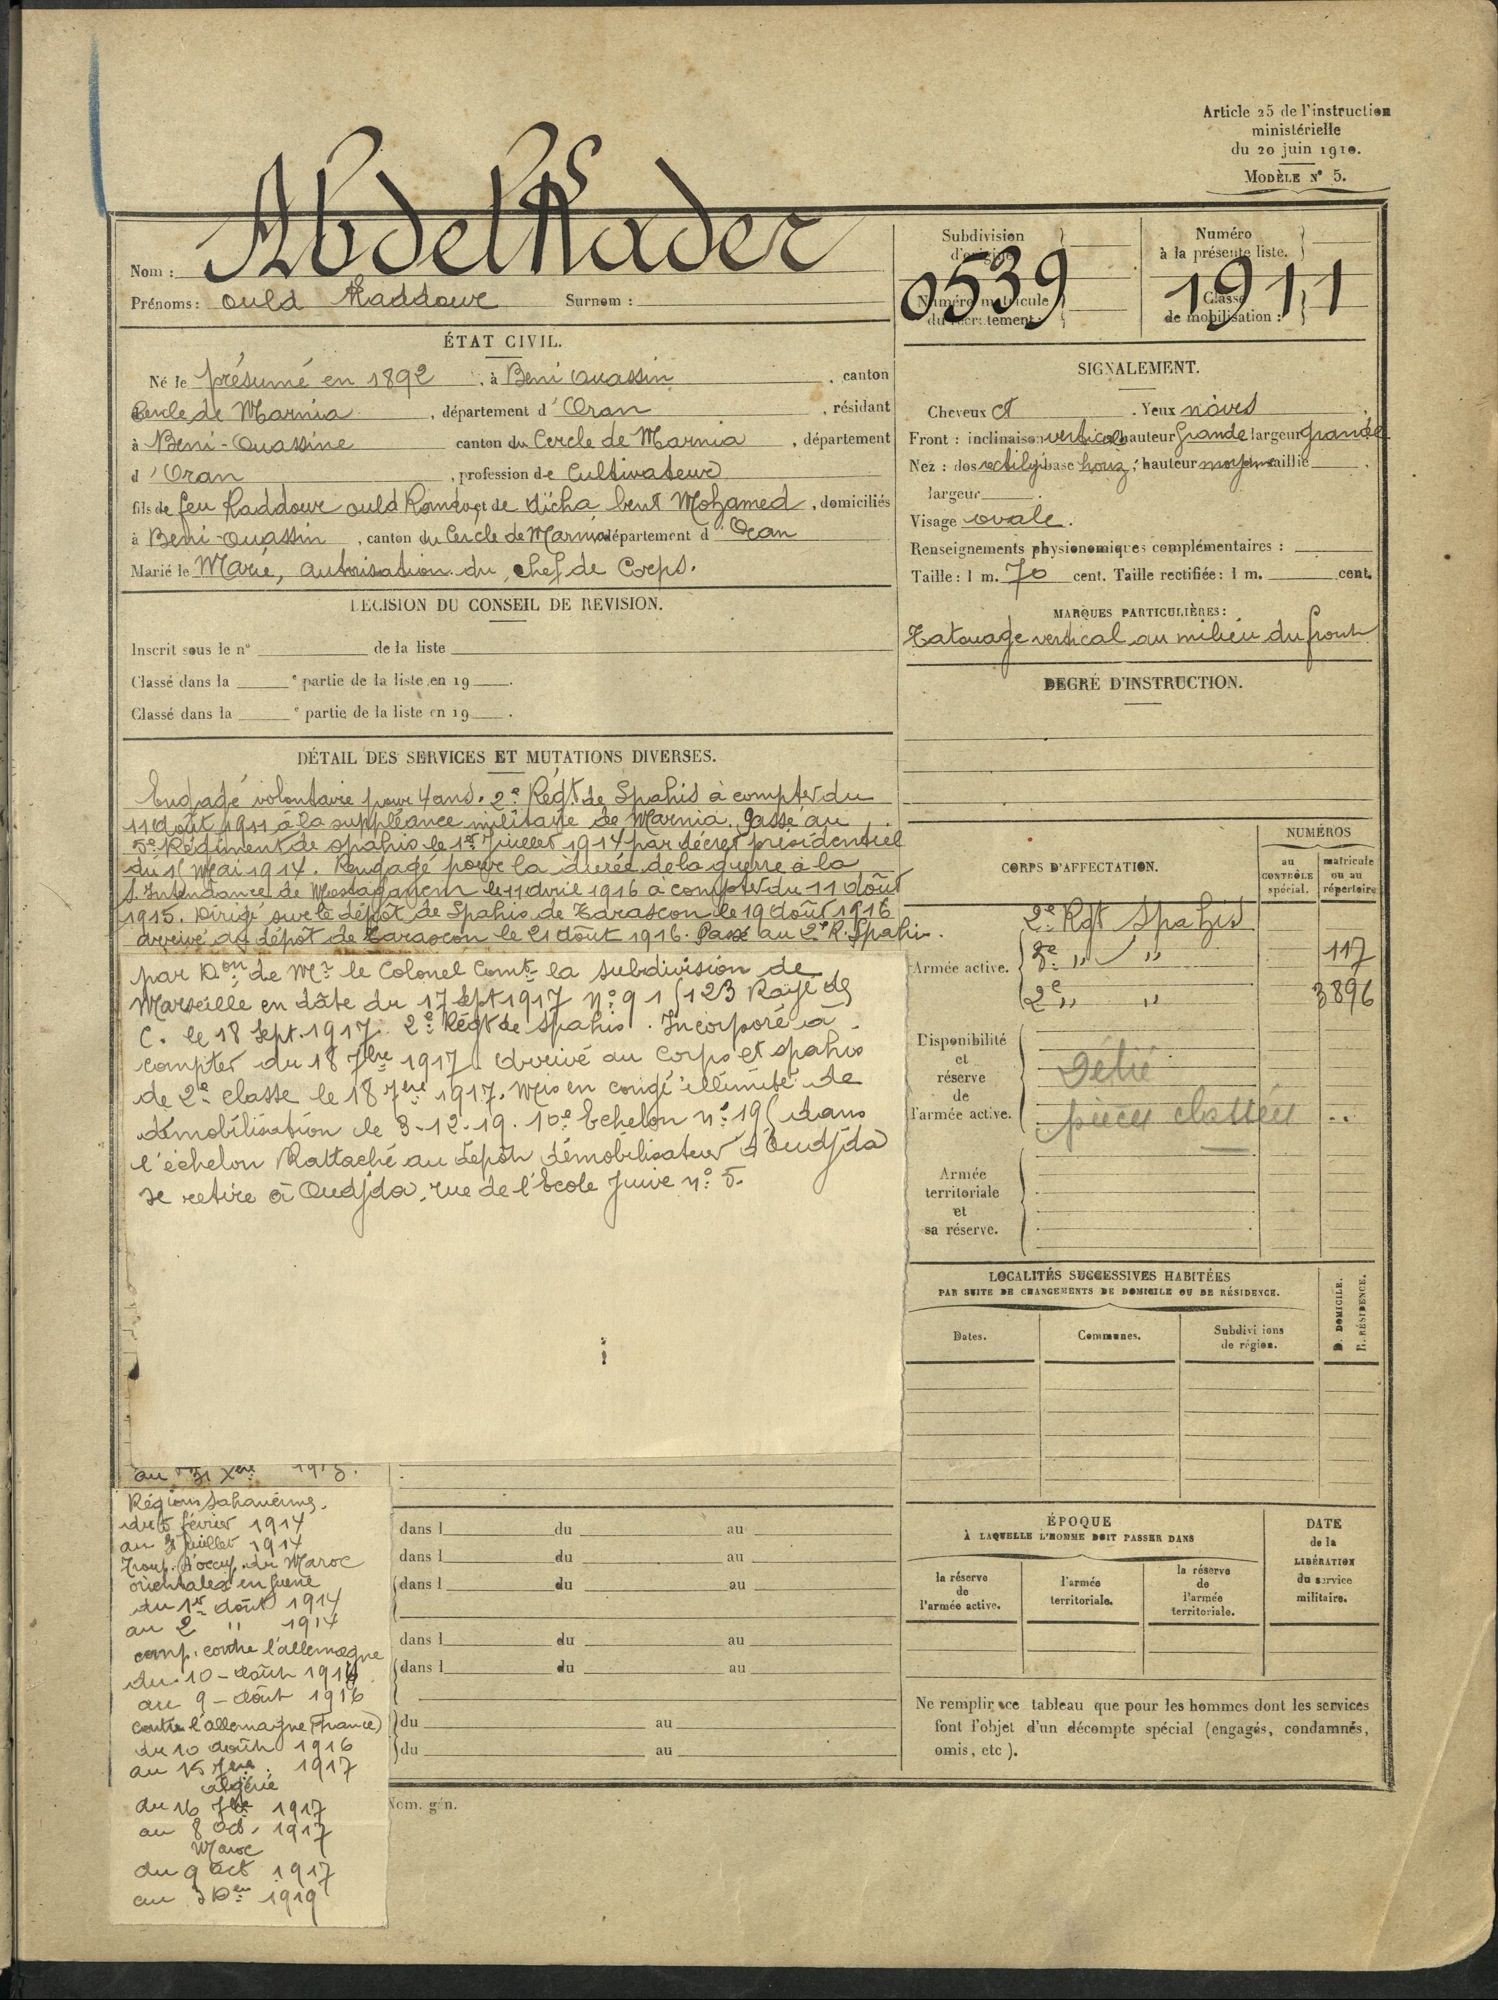 Article 25 de l'instruction
ministérielle
du 20 juin 1910.
MODÈLE N° 5.
Nom : AbdelKader
Prénoms : ould Kaddour Surnom :
Subdivision
d'origine
0539
Numéro matricule
du recrutement :
Numéro
à la présente liste.
1911
Classe
de mobilisation :
ÉTAT CIVIL.
Né le présumé en 1892, à Beni Ouassin, canton
Cercle de Marnia, département d'Oran, résidant
à Beni-Ouassine canton du Cercle de Marnia, département
d'Oran, profession de Cultivateur
fils de feu Kaddour ould et de Aïcha bent Mohamed, domiciliés
à Beni-Ouassin, canton du Cercle de Marnia département d'Oran
Marié le Marié, autorisation du chef de Corps.
SIGNALEMENT.
Cheveux et . Yeux noirs
Front : inclinaison verticale hauteur Grande largeur grande
Nez : dos rectilig base horiz; hauteur moyenne saillie
largeur .
Visage ovale.
Renseignements physionomiques complémentaires :
Taille : 1 m. 70 cent. Taille rectifiée : 1 m. cent.
MARQUES PARTICULIÈRES :
Tatouage vertical au milieu du front
DÉCISION DU CONSEIL DE REVISION.
Inscrit sous le n° de la liste
Classé dans la e partie de la liste en 19 .
Classé dans la e partie de la liste en 19 .
DEGRÉ D'INSTRUCTION.
DÉTAIL DES SERVICES ET MUTATIONS DIVERSES.
Engagé volontaire pour 4 ans. 2e Régt de Spahis à compter du
11 Août 1911 à la suppléance militaire de Marnia. Passé au
5e Régiment de spahis le 1er Juillet 1914 par décret présidentiel
du Mai 1914. Rengagé pour la durée de la guerre à la
S. Intendance de Mostaganem le 11 Avril 1916 à compter du 11 Août
1915. Dirigé sur le dépôt de Spahis de Tarascon le 19 Août 1916
arrivé au dépôt de Tarascon le 21 Août 1916. Passé au 2e R. Spahis.
par Don de Mr le Colonel Comt la subdivision de
Marseille en date du 17 Sept 1917 n° 91/123 Rayé des
C. le 18 Sept. 1917. 2e Régt de Spahis. Incorporé à
compter du 18 7bre 1917. Arrivé au corps et spahis
de 2e classe le 18 7bre 1917. Mis en congé illimité de
démobilisation le 3-12-19. 10e Echelon n° 19 (dans
l'échelon Rattaché au dépôt démobilisateur d'Oudjda
se retire à Oudjda, rue de l'Ecole Juive n° 5.
CORPS D'AFFECTATION.
NUMÉROS
au
CONTRÔLE
spécial.
matricule
ou au
répertoire
Armée active.
2e Rgt Spahis
" " 117
2e " " 3896
Disponibilité
et
réserve
de
l'armée active.
Délié
pièces classées
Armée
territoriale
et
sa réserve.
LOCALITÉS SUCCESSIVES HABITÉES
PAR SUITE DE CHANGEMENTS DE DOMICILE OU DE RÉSIDENCE.
Dates.
Communes.
Subdivisions
de région.
D. DOMICILE.
R. RÉSIDENCE.
ÉPOQUE
À LAQUELLE L'HOMME DOIT PASSER DANS
la réserve
de
l'armée active.
l'armée
territoriale.
la réserve
de
l'armée
territoriale.
DATE
de la
LIBÉRATION
du service
militaire.
Ne remplir ce tableau que pour les hommes dont les services
font l'objet d'un décompte spécial (engagés, condamnés,
omis, etc ).
au 31 Xbre 1913.
Régions Sahariennes.
du février 1914
au Juillet 1914
Troup. d'occup. du Maroc
oriental en guerre
du 1er Août 1914
au 2 " 1914
camp. contre l'allemagne
du 10 - Août 1914
au 9 - Août 1916
contre l'allemagne (France)
du 10 Août 1916
au 15 7bre 1917
algérie
du 16 7bre 1917
au 8 Oct. 1917
Maroc
du 9 Oct 1917
au 3 Xbre 1919
dans l du au
dans l du au
dans l du au
dans l du au
dans l du au
du au
du au
Nom. gén.